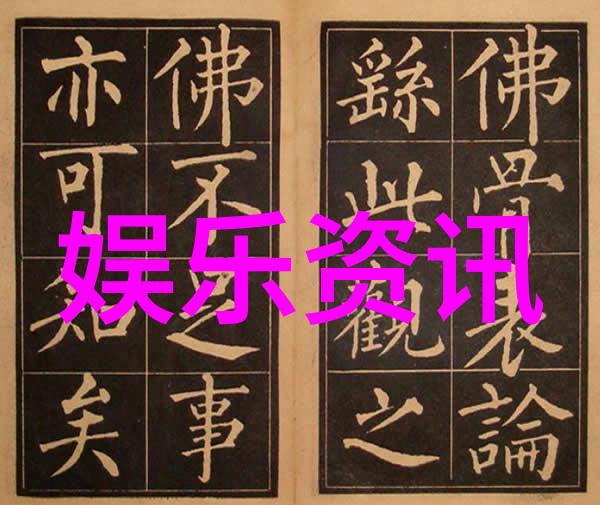 佛骨表論
繇此觀之
佛不足事
亦可知矣
娱乐资讯